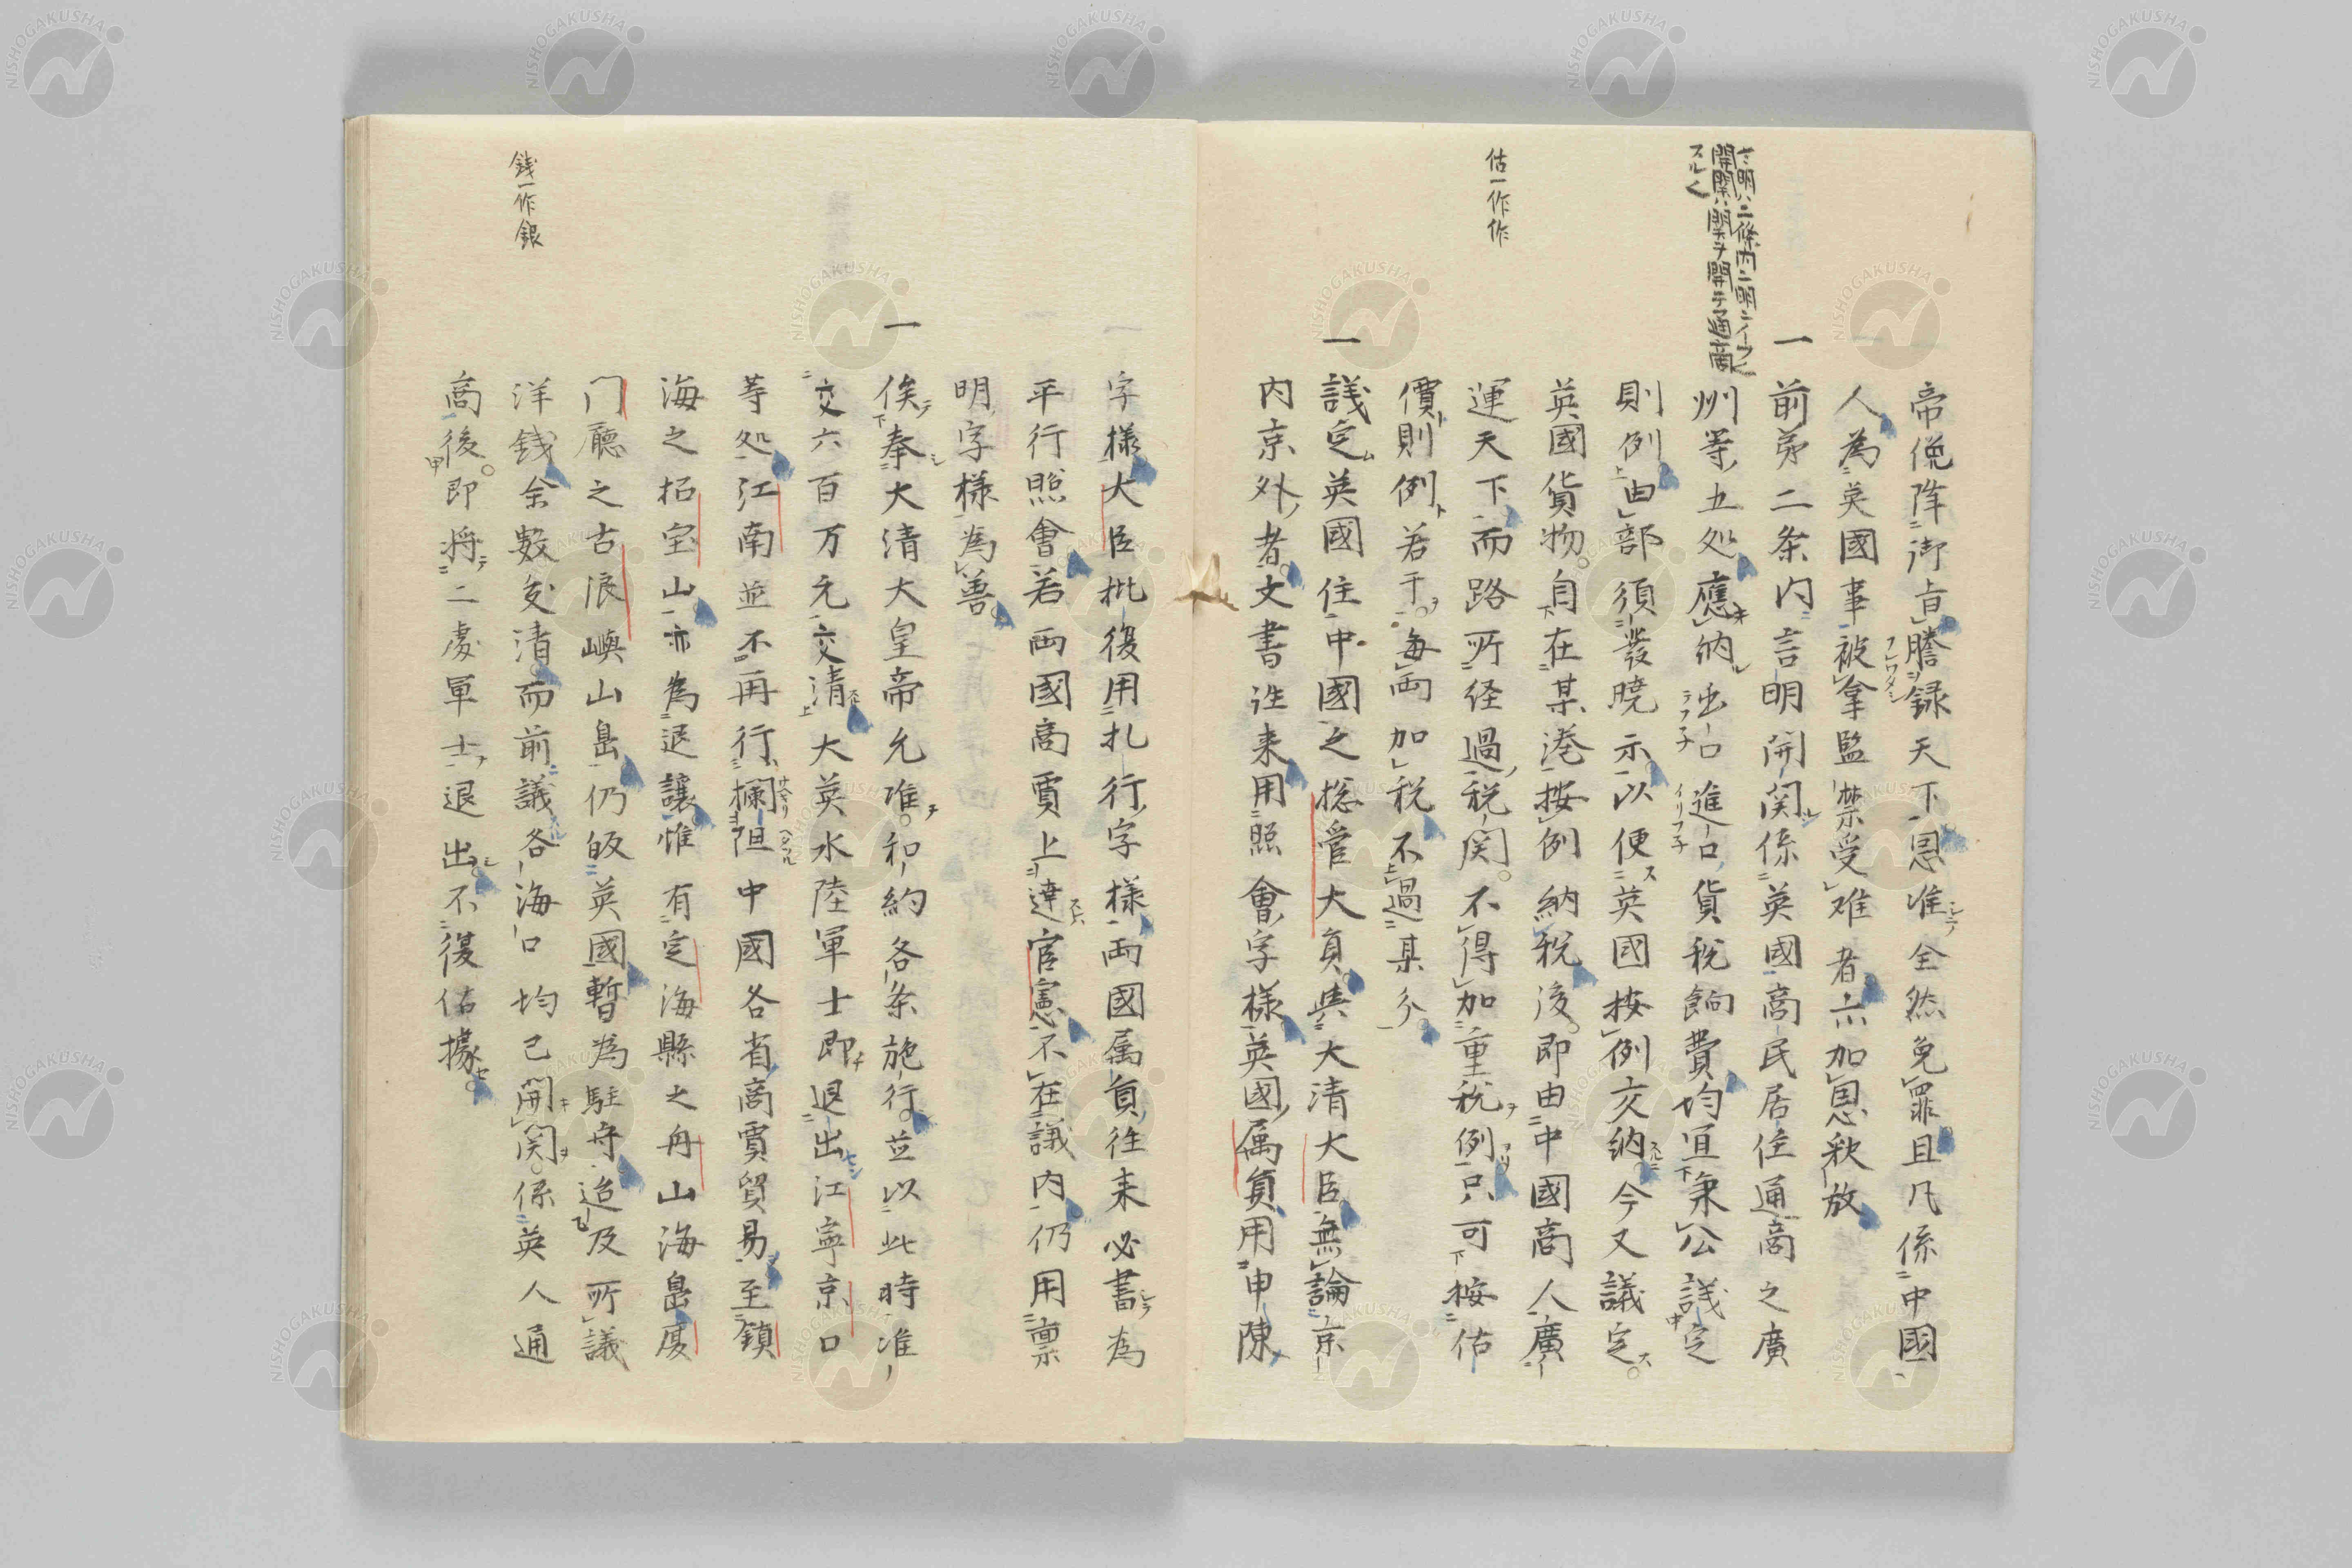 帝俛降御旨謄録天下恩准全然免罪且凡係中國
人為英國事被拿監禁受难者亦加恩釈放
一前苐二条内言明開関係英國商民居住通商之廣
州等五処應納出口進口貨税餉費均宜秉公議定
則例由部須發曉示以便英國按例交納今又議定
英國貨物自在某港按例納税後即由中國商人廣
運天下而路所経過税関不得加重税例只可按估
價則例若干每両加税不過某分
一議定英國住中國之総管大員與大清大臣無論京
内京外者文書往来用照會字様英國属員用申陳
字様大臣批復用札行字様両國属員往来必書為
平行照會若両國商賈上達官憲不在議内仍用稟
明字様為善
一俟奉大清大皇帝允准和約各条施行並以此時准
交六百万元交清大英水陸軍士即退出江寧京口
等処江南並不再行攔阻中國各省商賈貿易至鎮
海之招宝山亦為退讓惟有定海縣之舟山海島厦
门廳之古浪嶼山島仍皈英國暫為駐舟迨及所議
洋銭余數交清而前議各海口均已開関係英人通
商後即将二處軍士退出不復佔據
估一作作
銭一作銀